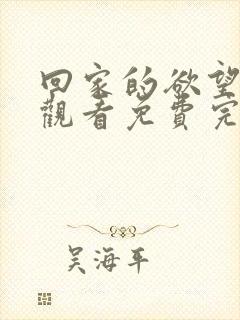 回家的欲望
觀看免費完
吴海平